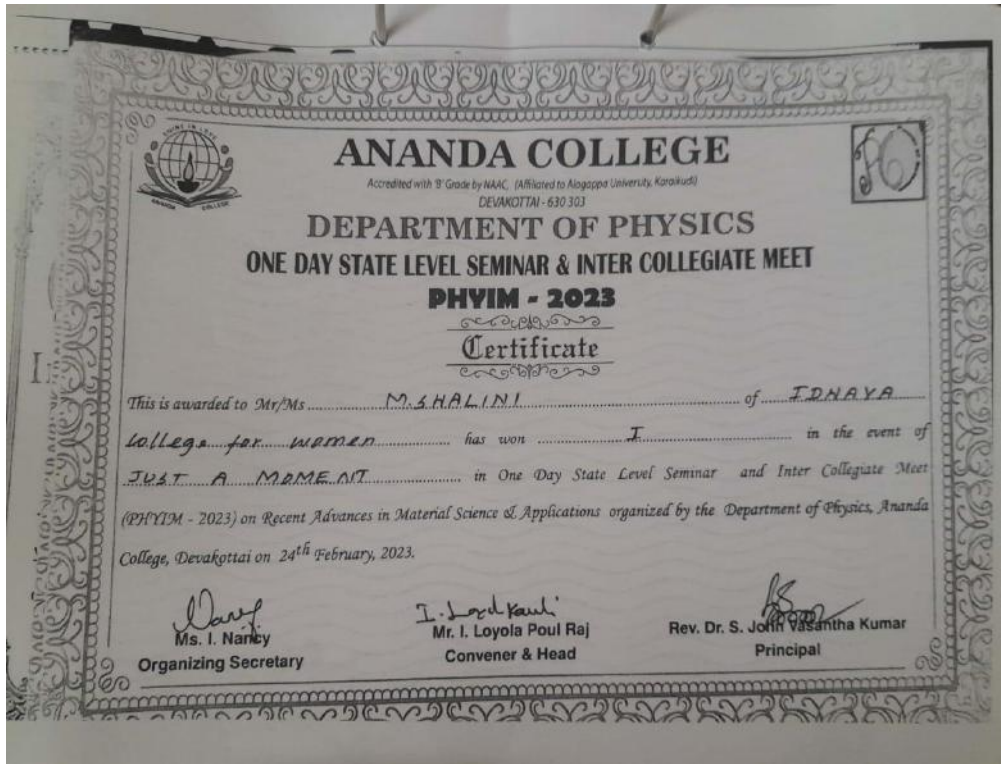 SHINE IN LOVE
ANANDA COLLEGE
ANANDA COLLEGE
Accredited with 'B' Grade by NAAC, (Affiliated to Alagappa University, Karaikudi)
DEVAKOTTAI - 630 303
DEPARTMENT OF PHYSICS
ONE DAY STATE LEVEL SEMINAR & INTER COLLEGIATE MEET
PHYIM - 2023
Certificate
This is awarded to Mr/Ms M.SHALINI of IDHAYA
College for women has won I in the event of
JUST A MOMENT in One Day State Level Seminar and Inter Collegiate Meet
(PHYIM - 2023) on Recent Advances in Material Science & Applications organized by the Department of Physics, Ananda
College, Devakottai on 24th February, 2023.
Ms. I. Nancy
Organizing Secretary
Mr. I. Loyola Poul Raj
Convener & Head
Rev. Dr. S. John Vasantha Kumar
Principal